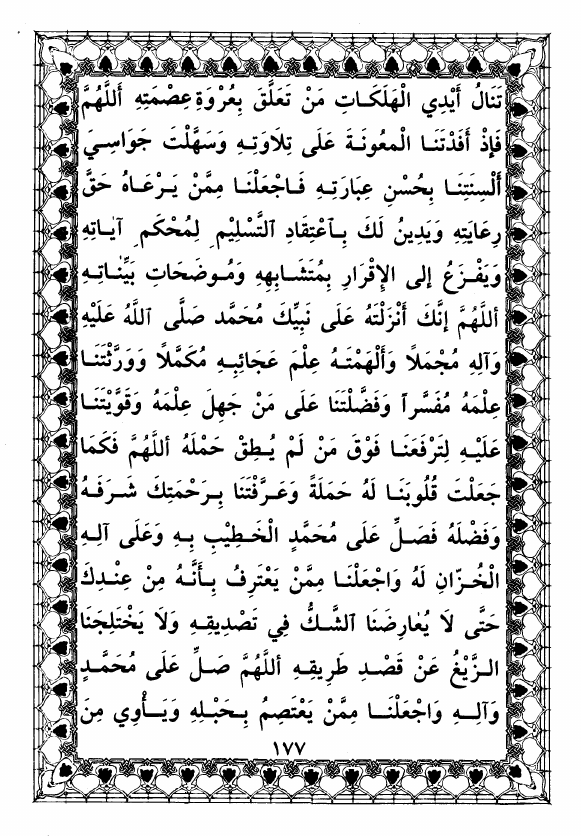 تَنَالُ أَيْدِي الْهَلَكَاتِ مَنْ تَعَلَّقَ بِعُرْوَةِ عِصْمَتِهِ أَللَّهُمَّ
فَإِذْ أَفَدْتَنَا الْمَعُونَةَ عَلَى تِلَاوَتِهِ وَسَهَّلْتَ جَوَاسِيَ
أَلْسِنَتِنَا بِحُسْنِ عِبَارَتِهِ فَاجْعَلْنَا مِمَّنْ يَرْعَاهُ حَقَّ
رِعَايَتِهِ وَيَدِينُ لَكَ بِاعْتِقَادِ التَّسْلِيْمِ لِمُحْكَمِ آيَاتِهِ
وَيَفْزَعُ إلى الإِقْرَارِ بِمُتَشَابِهِهِ وَمُوضَحَاتِ بَيِّنَاتِهِ
أللَّهُمَّ إنَّكَ أَنْزَلْتَهُ عَلَى نَبِيِّكَ مُحَمَّد صَلَّى اللَّهُ عَلَيْهِ
وَآلِهِ مُجْمَلاً وَأَلْهَمْتَهُ عِلْمَ عَجَائِبِهِ مُكَمَّلاً وَوَرَّثْتَنَا
عِلْمَهُ مُفَسَّراً وَفَضَّلْتَنَا عَلَى مَنْ جَهِلَ عِلْمَهُ وَقَوَّيْتَنَا
عَلَيْهِ لِتَرْفَعَنَا فَوْقَ مَنْ لَمْ يُطِقْ حَمْلَهُ أللَّهُمَّ فَكَمَا
جَعَلْتَ قُلُوبَنَا لَهُ حَمَلَةً وَعَرَّفْتَنَا بِرَحْمَتِكَ شَرَفَهُ
وَفَضْلَهُ فَصَلِّ عَلَى مُحَمَّدٍ الْخَطِيْبِ بِهِ وَعَلَى آلِهِ
الْخُزّانِ لَهُ وَاجْعَلْنَا مِمَّنْ يَعْتَرِفُ بِأَنَّهُ مِنْ عِنْدِكَ
حَتَّى لَا يُعَارِضَنَا الشَّكُّ فِي تَصْدِيقِهِ وَلَا يَخْتَلِجَنَا
الزَّيْغُ عَنْ قَصْدِ طَرِيقِهِ أللَّهُمَّ صَلِّ عَلَى مُحَمَّدٍ
وَآلِهِ وَاجْعَلْنَا مِمَّنْ يَعْتَصِمُ بِحَبْلِهِ وَيَأْوِي مِنَ
١٧٧